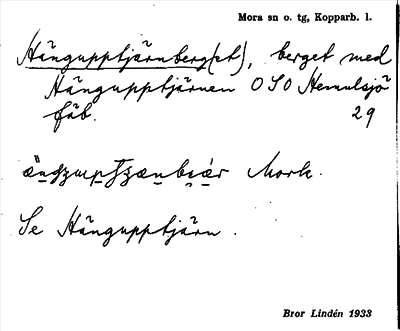 Mora sn o. tg, Kopparb. l.
Hängupptjärnberg(et), berget med
Hängupptjärnen OSO Hemulsjö
fäb. 29
Mork.
Se Hängupptjärn.
Bror Lindén 1933